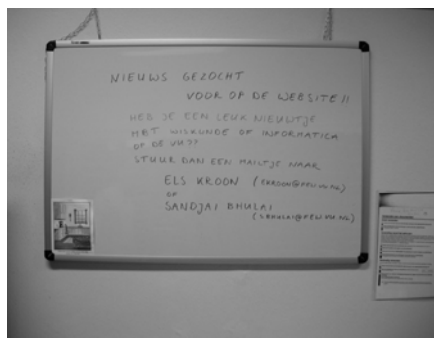 NIEUWS GEZOCHT
VOOR OP DE WEBSITE!!
HEB JE EEN LEUK NIEUWTJE
MBT WISKUNDE OF INFORMATICA
OF DE VU??
STUUR DAN EEN MAILTJE NAAR
ELS KROON (EKROON@FEW.VU.NL)
OF
SANDJAI BHULAI
(SBHULAI@FEW.VU.NL)